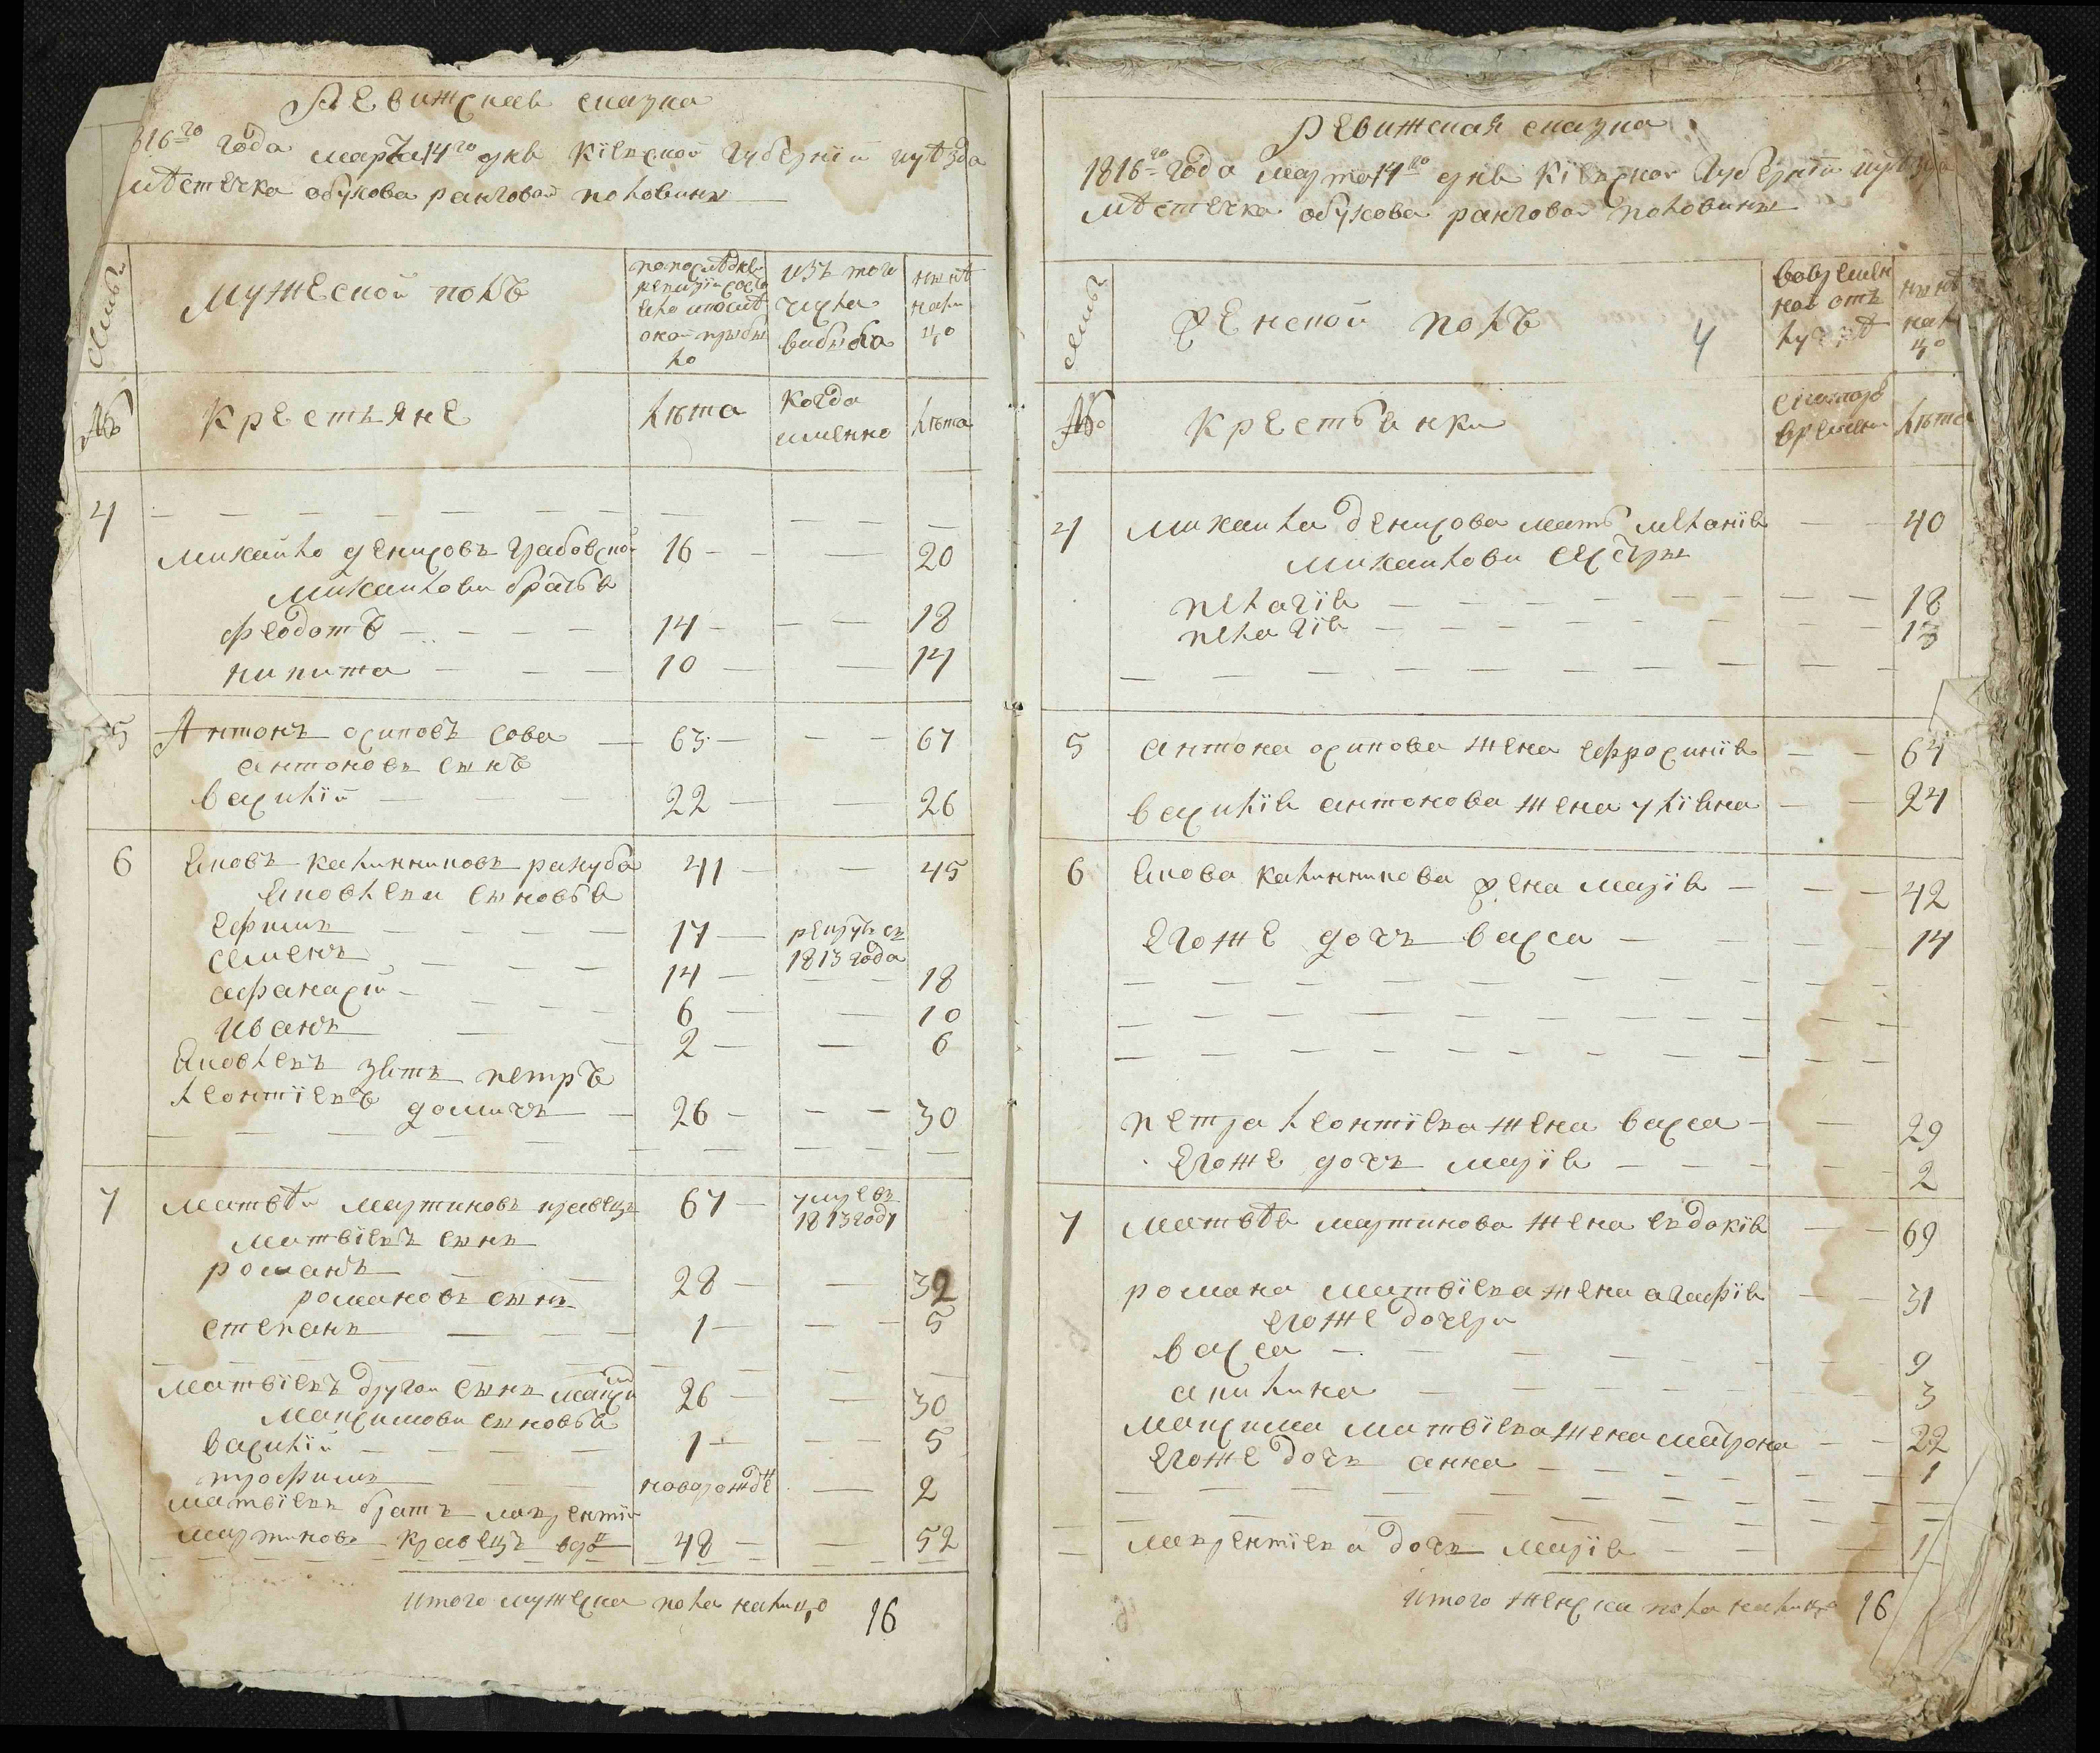 Ревижская сказка
816го года марта 14го дня Кіевской губерніи и уѣзда
мѣстечка обухова ранговой половины
семьи
мужеской полъ
по последней ревизіи состояло и после оной прибыло
изъ того числа выбыло
нынѣ налицо
№
крестьяне
лѣта
когда именно
лѣта
4
михайло денисовъ грабовской 16 20
михайлови братья
федотъ 14 18
никита 10 14
5 Антонъ осиповъ сова 63 67
антоновъ сынъ
василій 22 26
6 яковъ калинниковъ 41 45
яковлеви сыновья
ефимъ 17 рекрутъ съ
семенъ 1813 года
14 18
афанасій 6 10
иванъ 2 6
яковлевъ зять петръ
леонтіевъ домичъ 26 30
7 матвѣй мартиновъ кравецъ 67 умре въ
1813 году
матвіевъ сынъ
романъ 28 32
романовъ сынъ
степанъ 1 5
матвіевъ другой сынъ максимъ 26 30
максимови сыновья
василій 1 5
трофимъ новорожде 2
матвіевъ братъ лаврентій
мартиновъ кравецъ вдов 48 52
итого мужеска пола налицо 16
ревижская сказка
1816го года марта 14го дня Кіевской губерніи и уѣзда
мѣстечка обухова ранговой половины
семьи
женской полъ
4
во временной отлучкѣ
нынѣ налицо
№
крестьянки
с котораго времени
лѣта
4 михайла денисова мать меланія 40
михайлови сестры
пелагія 18
пелагія 13
5 антона осипова жена ефросинія 64
василія антонова жена уліяна 24
6 якова калинникова жена марія 42
егоже дочь васса 14
петра леонтіева жена васса 29
егоже дочь марія 2
7 матвѣя мартинова жена евдокія 69
романа матвіева жена агафія 31
егоже дочери
васса 9
акилина 3
максима матвіева жена матрона 22
егоже дочь анна 1
лаврентіева дочь марія 1
итого женска пола налицо 16